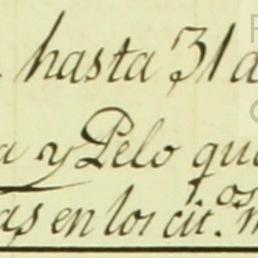 hasta 31 d
a y Pelo que
as en los cit.os m